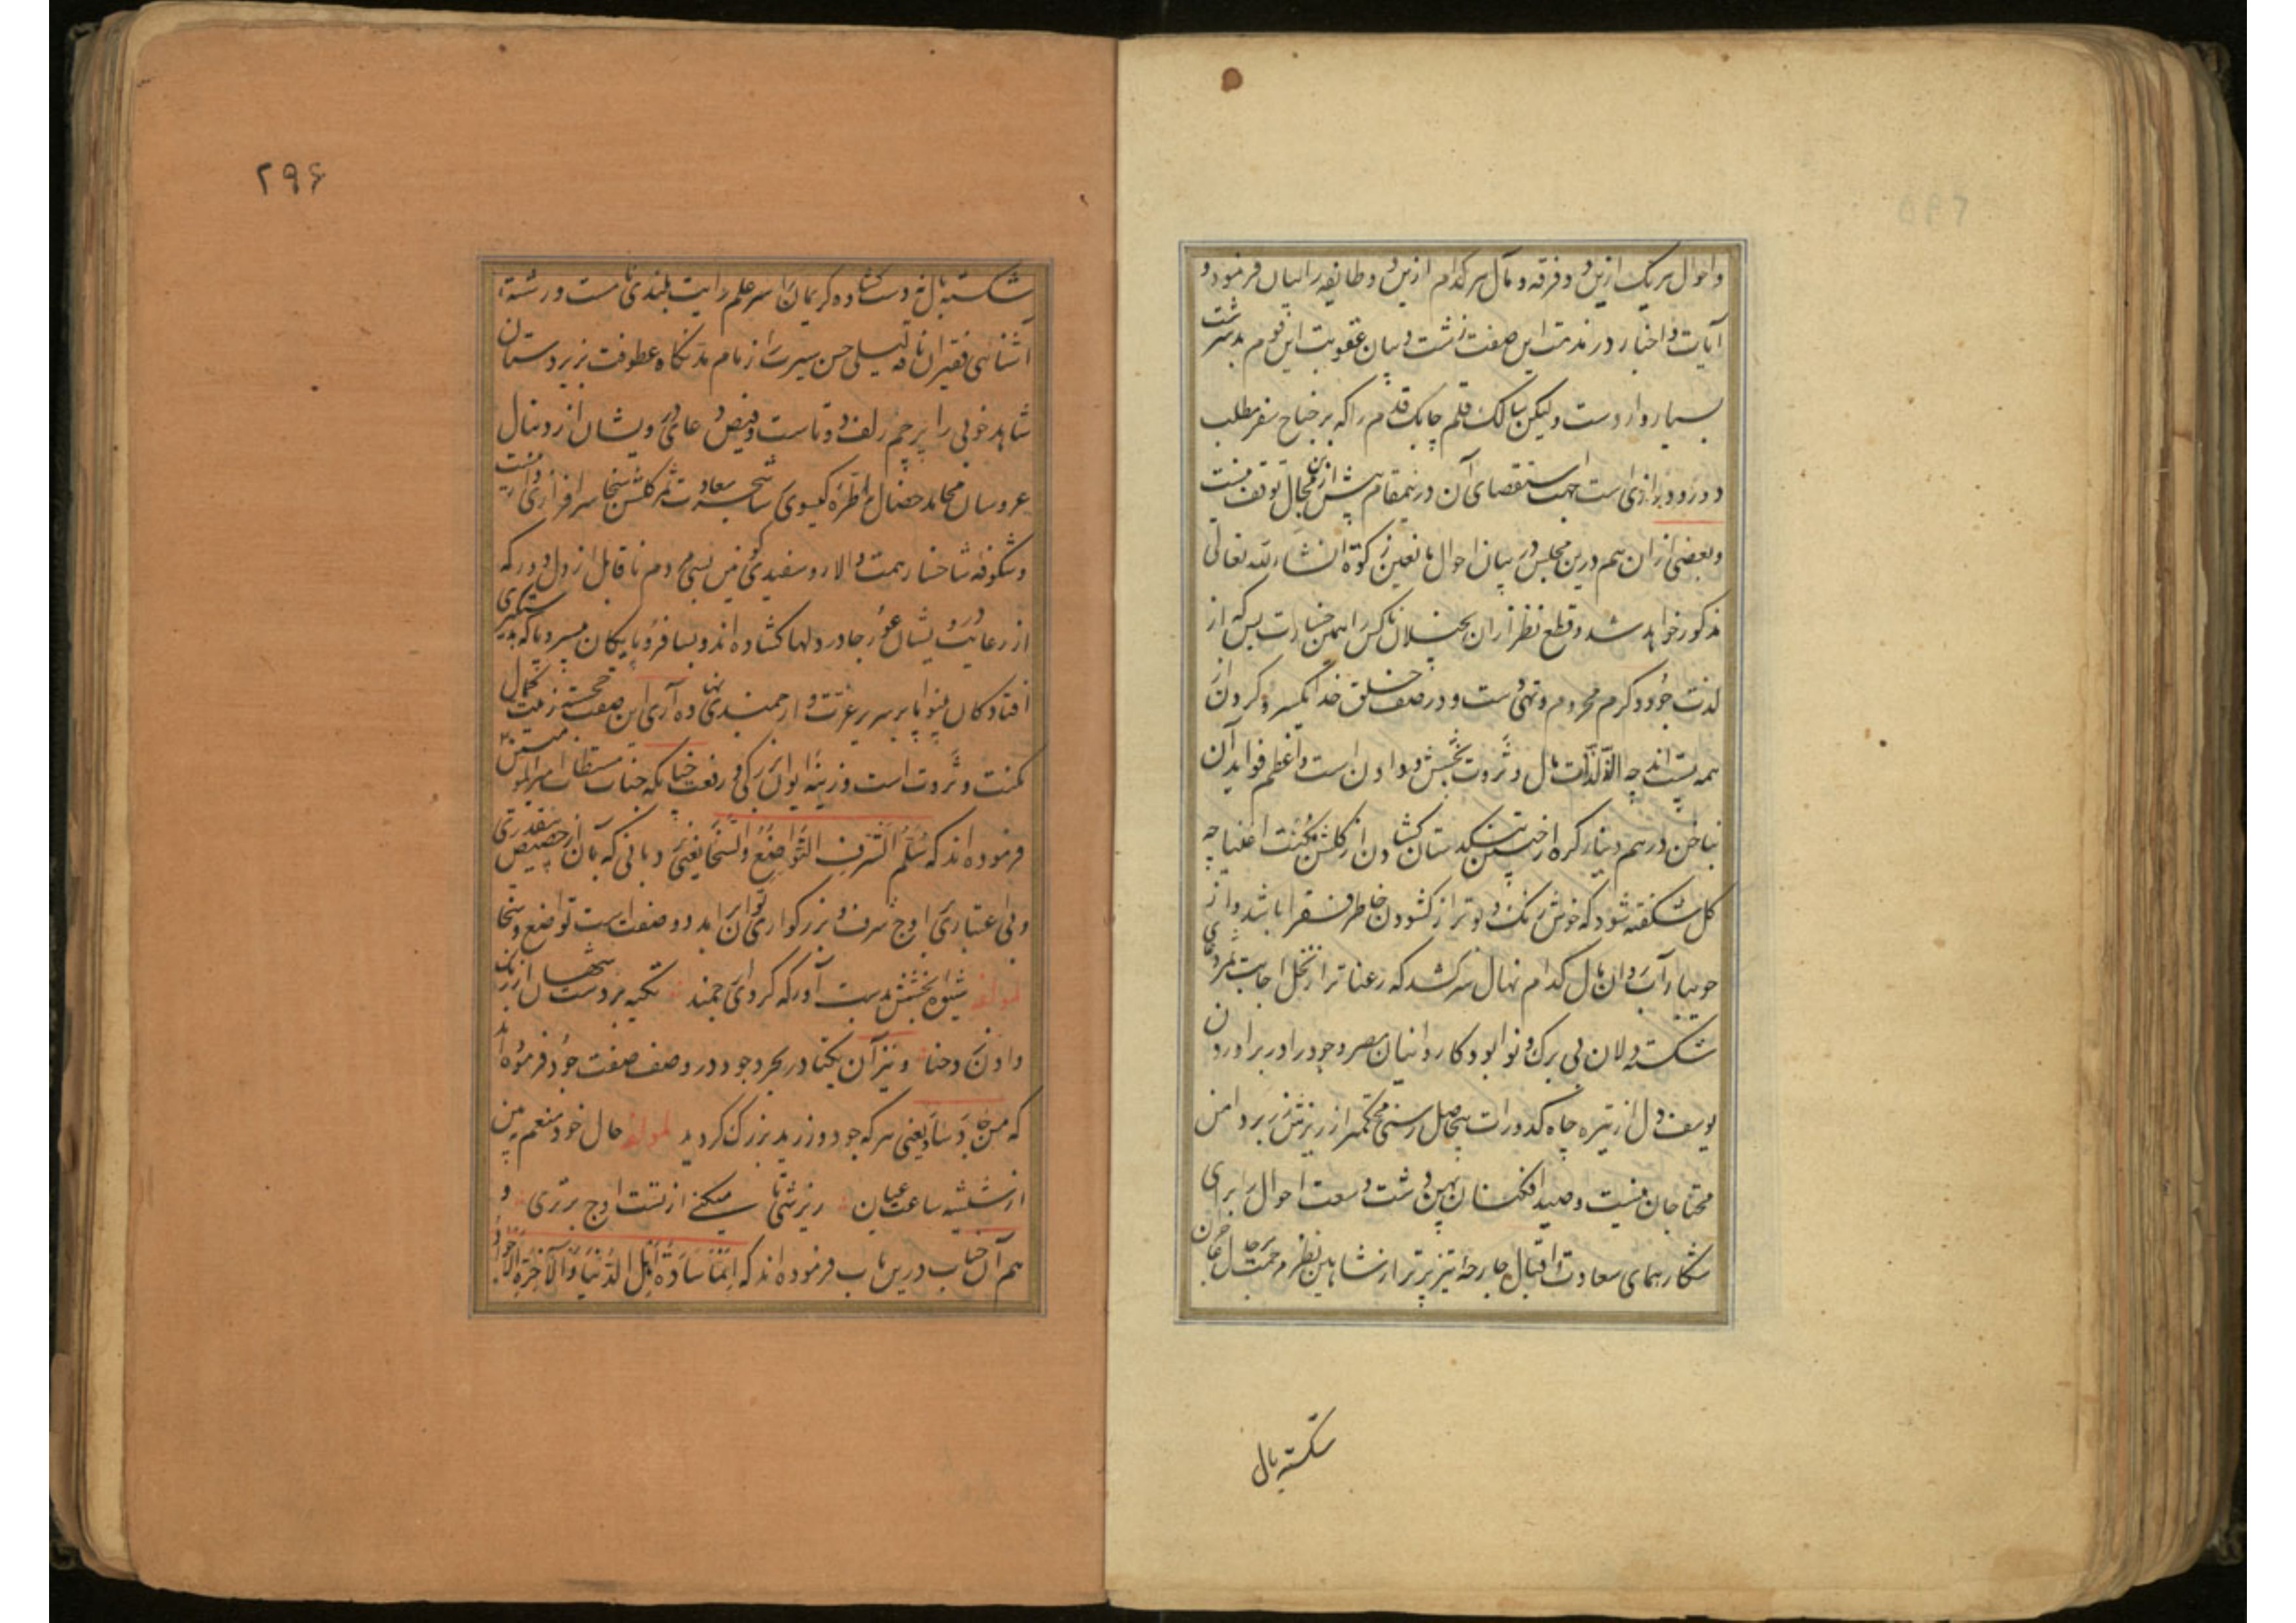 واحوال هر یک ازین دو فرقه و مآل هر کدام ازین دو طایفه را بیان فرموده و
آیات و اخبار در مذمت این صفت زشت و بیان عقوبت این قوم بدسرشت
بسیار وارد است ولیکن سالک قلم چابک قدم را که بر جناح سفر مطلب
دور و درازی است جهت استقصای آن درینمقام بیش ازین مجال توقف نیست
و بعضی از ان هم درین مجلس در بیان احوال مانعین زکوة انشاء الله تعالی
مذکور خواهد شد و قطع نظر از ان بخیلان ناکس را همین خسارت بس که از
لذت جود و کرم محروم و تهی دست و در صف خلق خدا یکسر و کردن از
همه پست اند چه الذ لذات مال و ثروت بخشش و دادن است و اعظم فواید آن
بناخن درهم و دینار کره از جبین تنکدستان کشادن از کلشن مکنت اغنیا چه
کل شکفته شود که خوش رنک و بوتر از کشودن خاطر فقرا باشد و از
جویبار آب روان مال کدام نهال سر کشد که رعناتر از نخل اجابت ثمر دعای
شکسته دلان بی برک و نوا بود کاروانیان مصر وجود را در برآوردن
یوسف دل از تیره چاه کدورات بیحاصل رسنی محکمتر از ریزش زر بر دامن
محتاجان نیست و صید افکنان پهن دشت وسعت احوال را برای
شکار همای سعادت و اقبال جارحهٔ تیز پرتر از شاهین نظر مرحمت بحال عاجزان
شکسته بال
۲۹۶
شکسته بال نه دست کشاده کریمان را سر علم رایت بلندی نامست و رشتهٔ
آشنائی فقیران ناقه لیلی حسن سیرت را زمام مد نکاه عطوفت زیردستان
شاهد خوبی را پرچم زلف دوتاست و فیض دعای درویشان از دنبال
عروسان محامد خصال طره کیسوی شجر سعادت ثمر کلشن سخا سرافرازی
و شکوفه شاخسار همت والا رو سفیدی فیض بسی مردم ناقابل از دل و در که
از رعایت درویشان عور جا در دلها کشاده اند و بسا فرومایکان بی سر و پا که بدستکیری
افتادکان بینوا پا بر سریر عزت و ارجمندی نهاده آری این صفت خجسته زینت کمال
مکنت و ثروت است و زینه ایوان بزرکی و رفعت چنانکه جناب مستطاب امیرالمؤمنین
فرموده اند که سُلَّمُ الشَّرَفِ التَّواضُعُ وَالسَّخا یعنی نردبانی که بآن از حضیض بیقدری
و بی اعتباری بر اوج شرف و بزرکواری توان برآمد دو صفت است تواضع و سخا
لمولفه شیوه بخشش بدست آور که کردی ارجمند تکیه بر دست
دادن و حنا و نیز آن یکتا در بحر وجود در وصف صفت جود فرموده اند
که من جادَ سادَ یعنی هر که جود ورزید بزرک کردید لمولفه حال خود منعم ببین
از شیشه ساعت عیان ریزشی تا میکنی از تست اوج برتری و
هم آن جناب درین باب فرموده اند که اِنَّما سادَةُ اَهْلِ الدُّنیا وَ الْآخِرَةِ الْاَجْوادُ